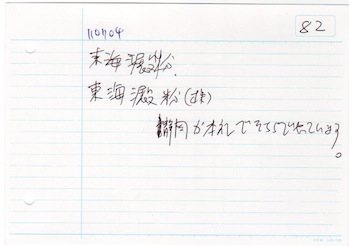 82
110704
東海澱粉
東海澱粉(株)
静岡が本社でそちらで出ています。